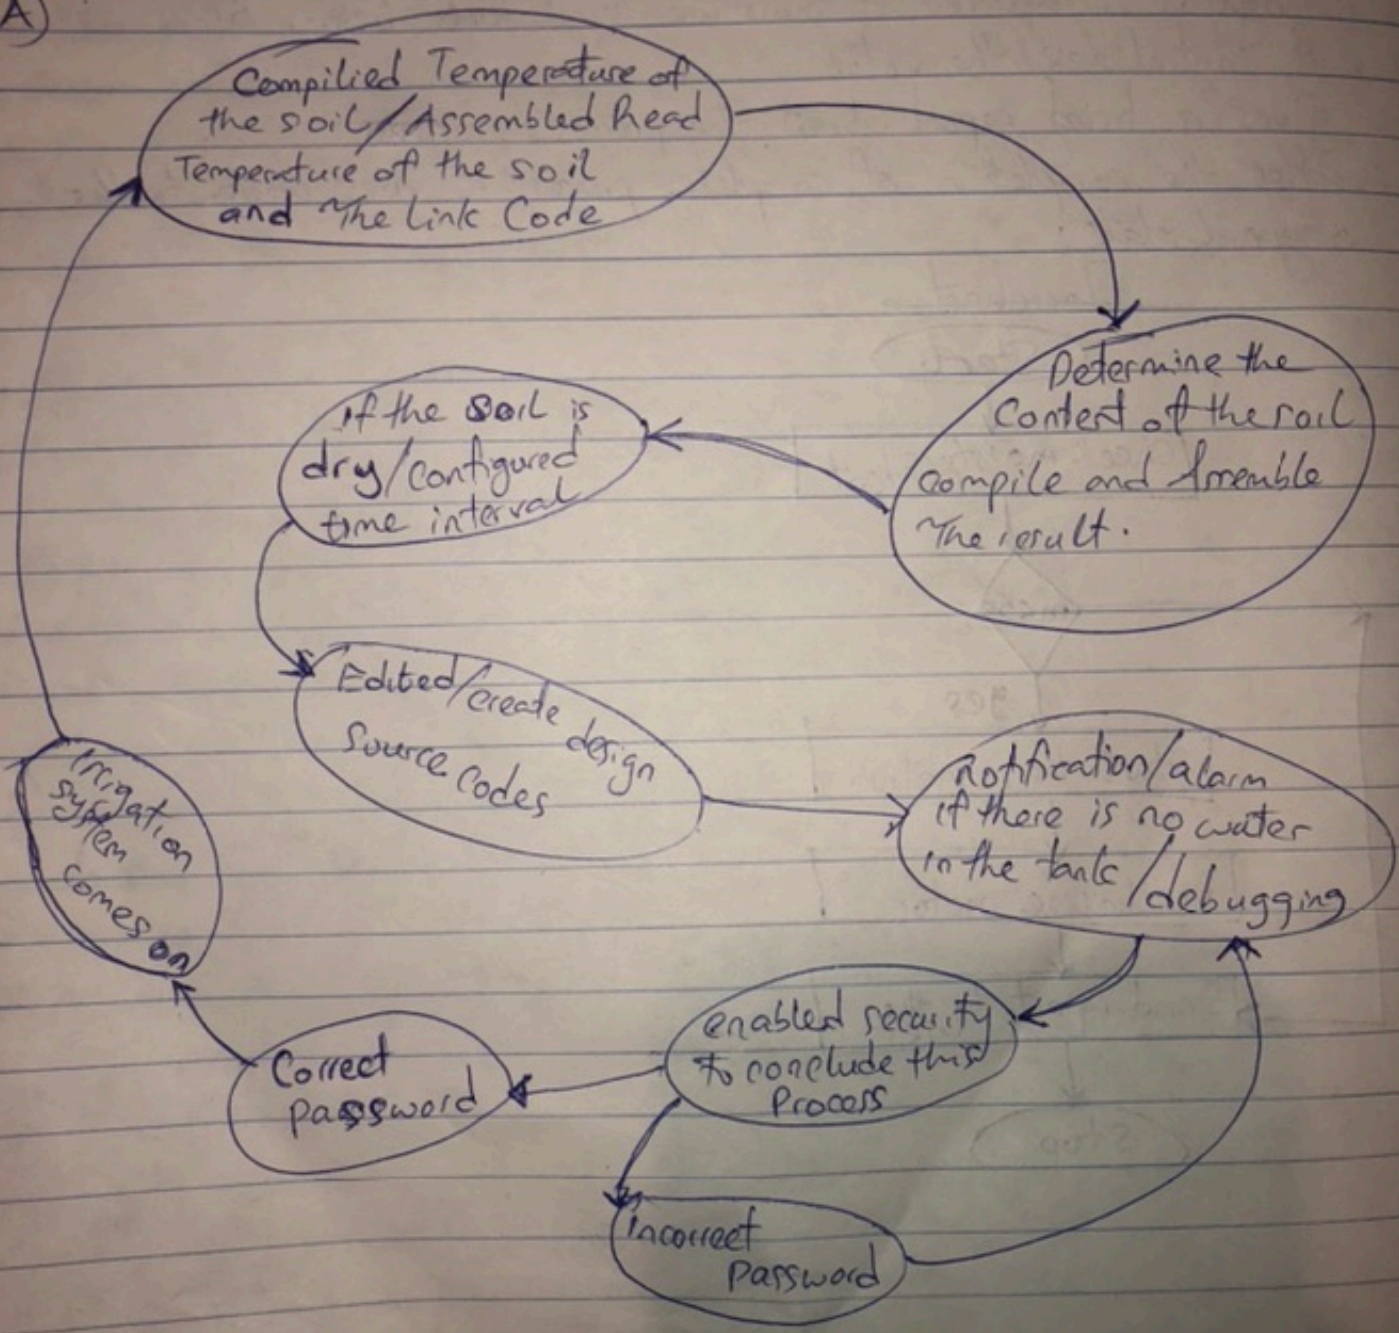 A)
Compilied Temperature of
the soil/Assembled Read
Temperature of the soil
and The Link Code
Determine the
Content of the soil
compile and Assemble
The result.
if the soil is
dry/configured
time interval
Edited/create design
source codes
Notification/alarm
if there is no water
in the tank/debugging
enabled security
to conclude this
Process
Correct
password
Incorrect
password
Irrigation
system
comes on